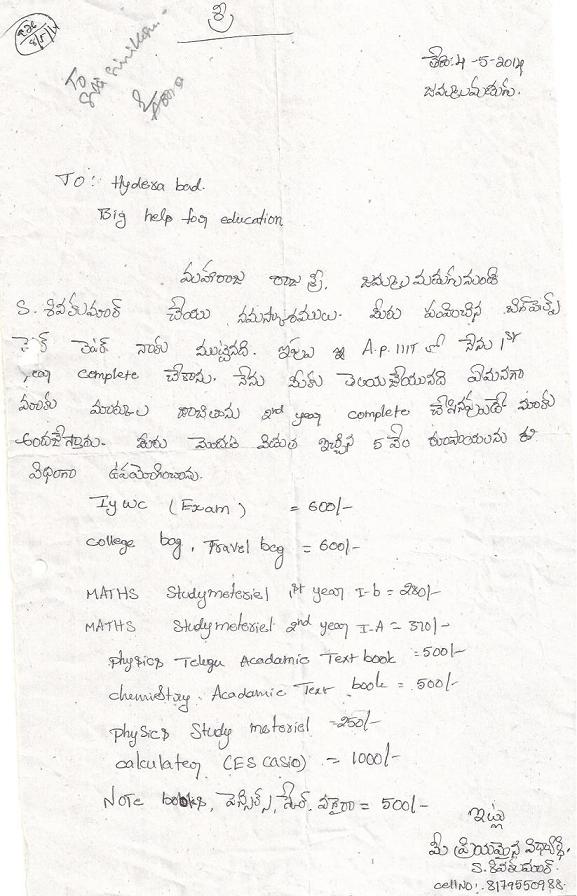 శ్రీ
8/5/14
To
తేది: 4-5-2014
జమ్మలమడుగు.
TO: Hydera bad.
Big help for education
మహారాజ రాజశ్రీ, జమ్మలమడుగునుండి
S. శివకుమార్ చేయు నమస్కారములు. మీరు పంపించిన బిగ్‌హెల్ప్
నాకు ముట్టినది. ఇపుడు A.P. IIIT లో నేను 1st
year complete చేశాను. నేను మీకు తెలియచేయునది ఏమనగా
మాకు మార్కుల 2nd year complete చేసినప్పుడే మాకు
అందజేస్తారు. మీరు మొదటి విడుత ఇచ్చిన 5 వేల రూపాయలను ఈ
విధంగా ఉపయోగించాను.
Iywc (Exam) = 600/-
college bag, Travel bag = 600/-
MATHS Studymeteriel 1st year I-b = 280/-
MATHS Studymeteriel 2nd year I-A = 370/-
physics Telugu Acadamic Text book = 500/-
chemistry. Acadamic Text book = 500/-
physics Study meteriel = 250/-
calculater (ES CASIO) = 1000/-
NOTE books, పెన్సిల్స్, స్కేల్, వగైరా = 500/-
ఇట్లు
మీ ప్రియమైన విద్యార్థి,
S. శివకుమార్.
cell NO: 8179550988.